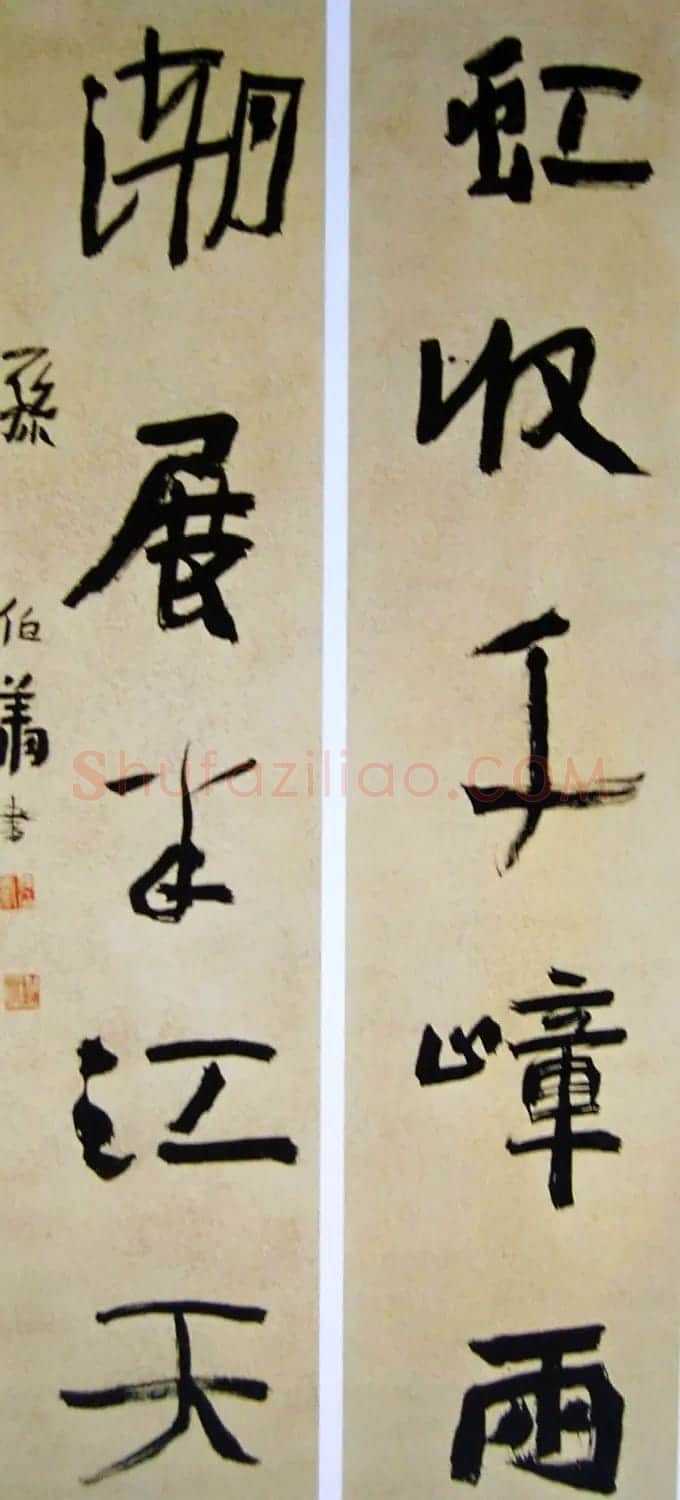 虹收千嶂雨
潮展半江天
孫伯翔書
Shufaziliao.COM